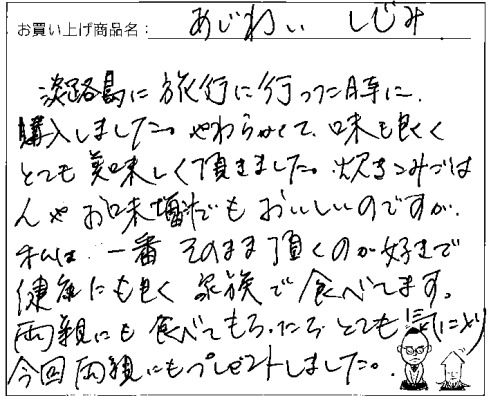 お買い上げ商品名： あじわい しじみ
淡路島に旅行に行った時に、
購入しました。やわらかくて、味も良く
とても美味しく頂きました。炊きこみごは
んやお味噌汁でもおいしいのですが、
私は、一番そのまま頂くのが好きで
健康にも良く家族で食べてます。
両親にも食べてもらったらとても気に入り
今回両親にもプレゼントしました。